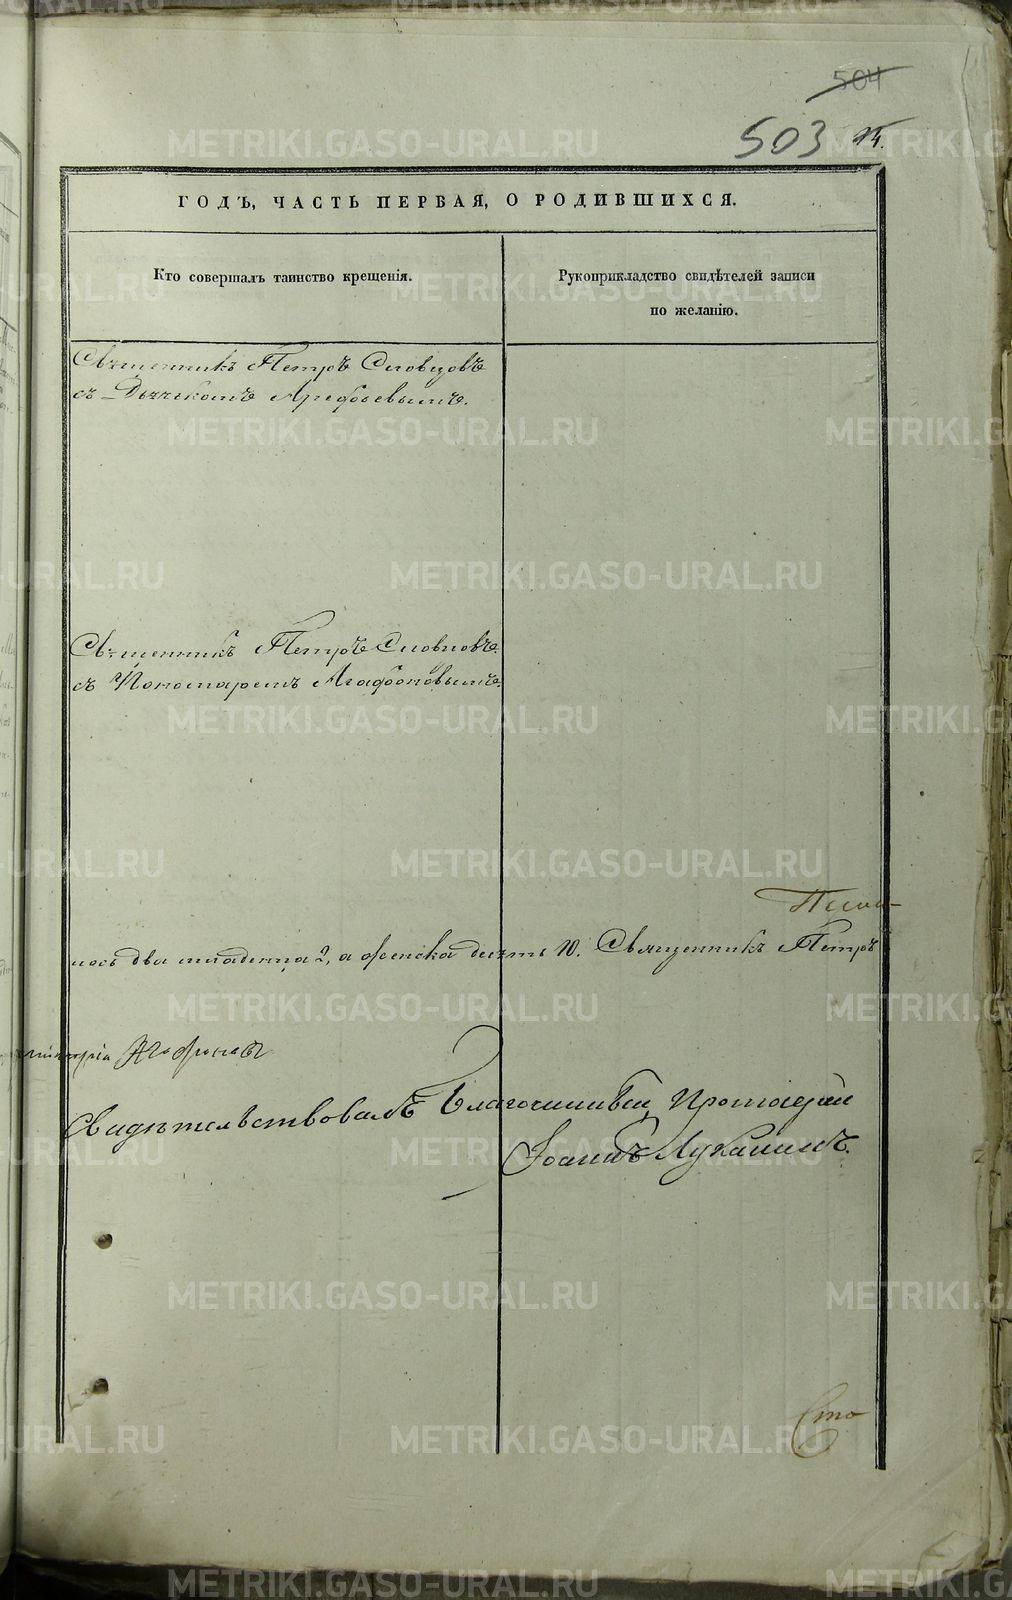 504
503
ГОДЪ, ЧАСТЬ ПЕРВАЯ, О РОДИВШИХСЯ.
Кто совершалъ таинство крещенія.
Рукоприкладство свидѣтелей записи
по желанію.
Священникъ Петръ Словцовъ
съ Дьячкомъ Арефьевымъ.
Священникъ Петръ Словцовъ
съ Пономаремъ Агафоновымъ.
лось два младенца 2, а женска десять 10. Священникъ Петръ
Агафоновъ
Свидѣтельствовалъ Благочинный Протоіерей
Іоаннъ Луканинъ.
Сто
METRIKI.GASO-URAL.RU